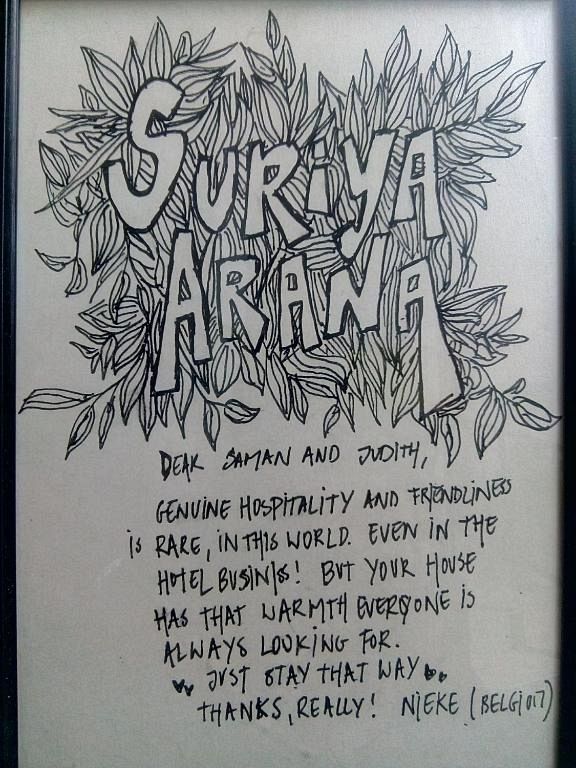 SURiYA
ARANA
DEAR SAMAN AND JUDITH,
GENUINE HOSPITALITY AND FRIENDLINESS
iS RARE, IN THIS WORLD. EVEN IN THE
HOTEL BUSINISS! BUT YOUR HOUSE
HAS THAT WARMTH EVERYONE iS
ALWAYS LOOKING FOR.
JUST STAY THAT WAY
THANKS, REALLY! NiEKE (BELGiUM)